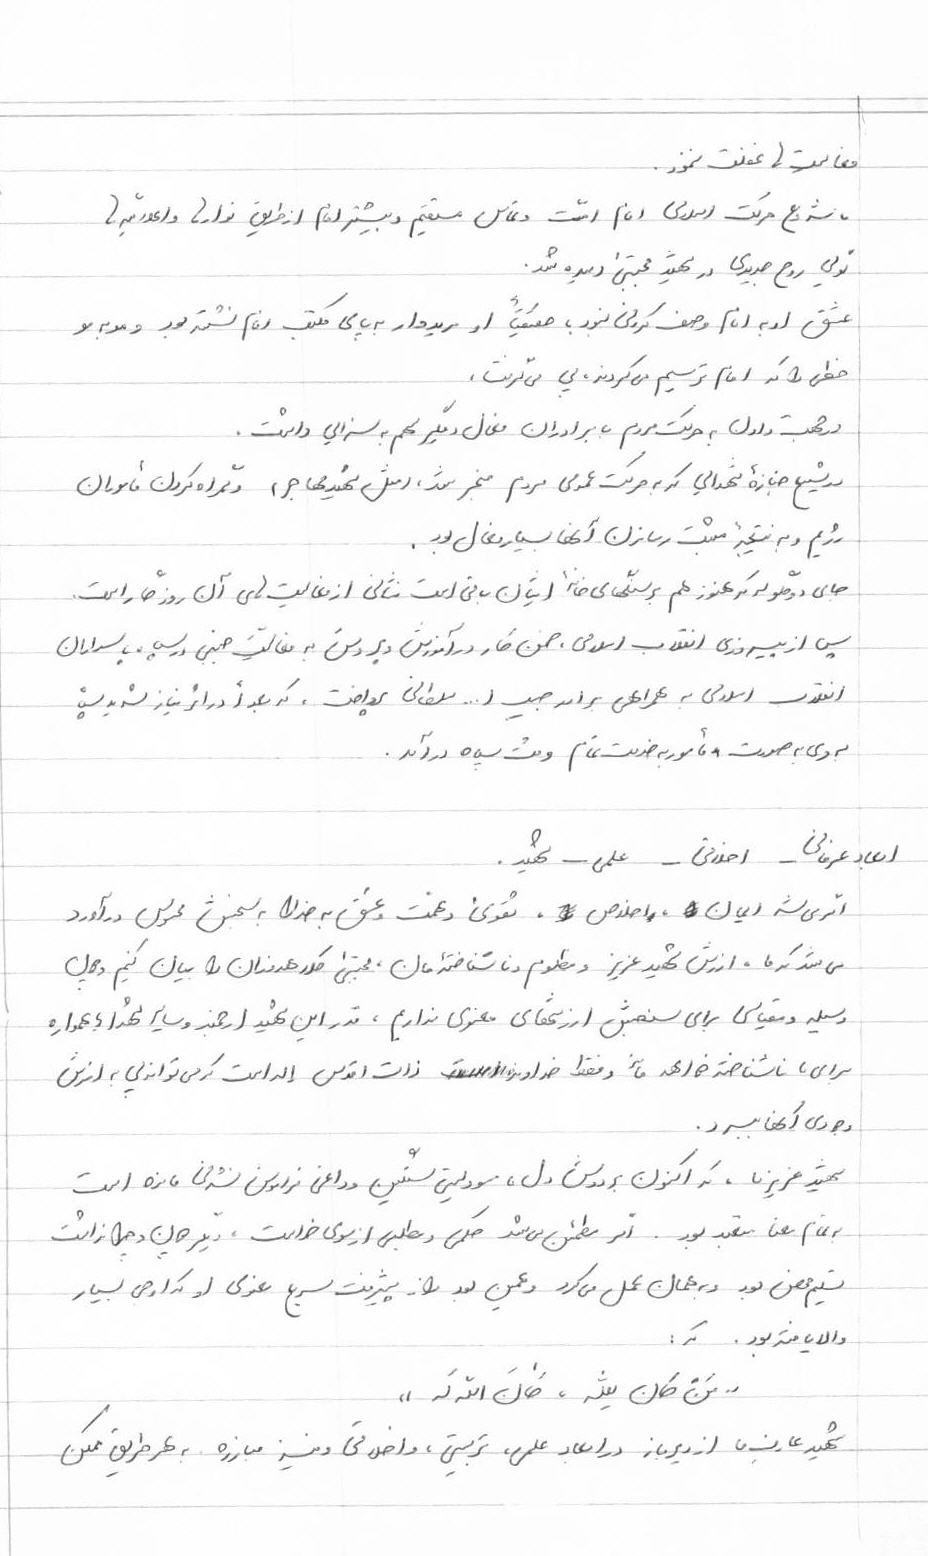 فعالیت‌ها غفلت نمی‌نمود.
با شروع حرکت اسلامی امام امّت و تماس مستقیم و بیشتر امام از طریق نوارها و اعلامیّه‌ها
گوئی روح جدیدی در شهید مجتبیٰ دمیده شد.
عشق او به امام وصف کردنی نبود، حقیقتاً او مریدوار به پای مکتب امام نشسته بود و مو به مو
خطی را که امام ترسیم می‌کردند، پی می‌گرفت.
در جهت دادن به حرکت مردم با برادران فعال دیگر سهم به سزائی داشت.
در تشییع جنازهٔ شهدائی که به حرکت عمومی مردم منجر شد، (مثل شهید مهاجر) و گمراه کردن مأموران
رژیم و به نتیجهٔ مثبت رساندن آنها بسیار فعال بود.
جای دو گلوله که هنوز هم بر سنگهای خانهٔ ایشان باقی است نشانی از فعالیت‌های آن روزها است.
پس از پیروزی انقلاب اسلامی، ضمن کار در آموزش و پرورش به فعالیت جنبی در سپاه پاسداران
انقلاب اسلامی به همراهی برادر حبیب ا... پرداخت، که بعداً در اثر نیاز شدید سپاه
به وی به صورت مأمور به خدمت تمام وقت سپاه درآمد.
ابعاد عرفانی - اخلاقی - علمی - شهید.
اگر می‌شد ایمان، اخلاص، تقویٰ و عفت و عشق به خدا را به سنجش محسوس درآورد
می‌شد که ما، ارزش شهید عزیز و مظلوم و ناشناخته‌مان، مجتبیٰ را بیان کنیم و چون
وسیله و مقیاسی برای سنجش ارزشهای معنوی نداریم، قدر این شهید ارجمند و سایر شهداء همواره
برای ما ناشناخته خواهد ماند و فقط خداوند ذات اقدس إله است که می‌تواند پی به ارزش
وجودی آنها ببرد.
شهید عزیز ما، که اکنون بر دوش دل، مسئولیتی سنگین و داغی فراموش نشدنی مانده است
به تمام معنا متعبد بود. اگر مطمئن می‌شد حکمی و مطلبی از سوی خداست، دیگر چون و چرا نداشت
تسلیم محض بود و به همان عمل می‌کرد و همین بود راز پیشرفت سریع معنوی او که اوجی بسیار
والا یافته بود. که:
«مَنْ کَانَ لِلّٰه، کَانَ اللّٰهُ لَه»
شهید عارف ما از دیرباز در ابعاد علمی، تربیتی، و اخلاقی و نیز مبارزه به هر طریق ممکن